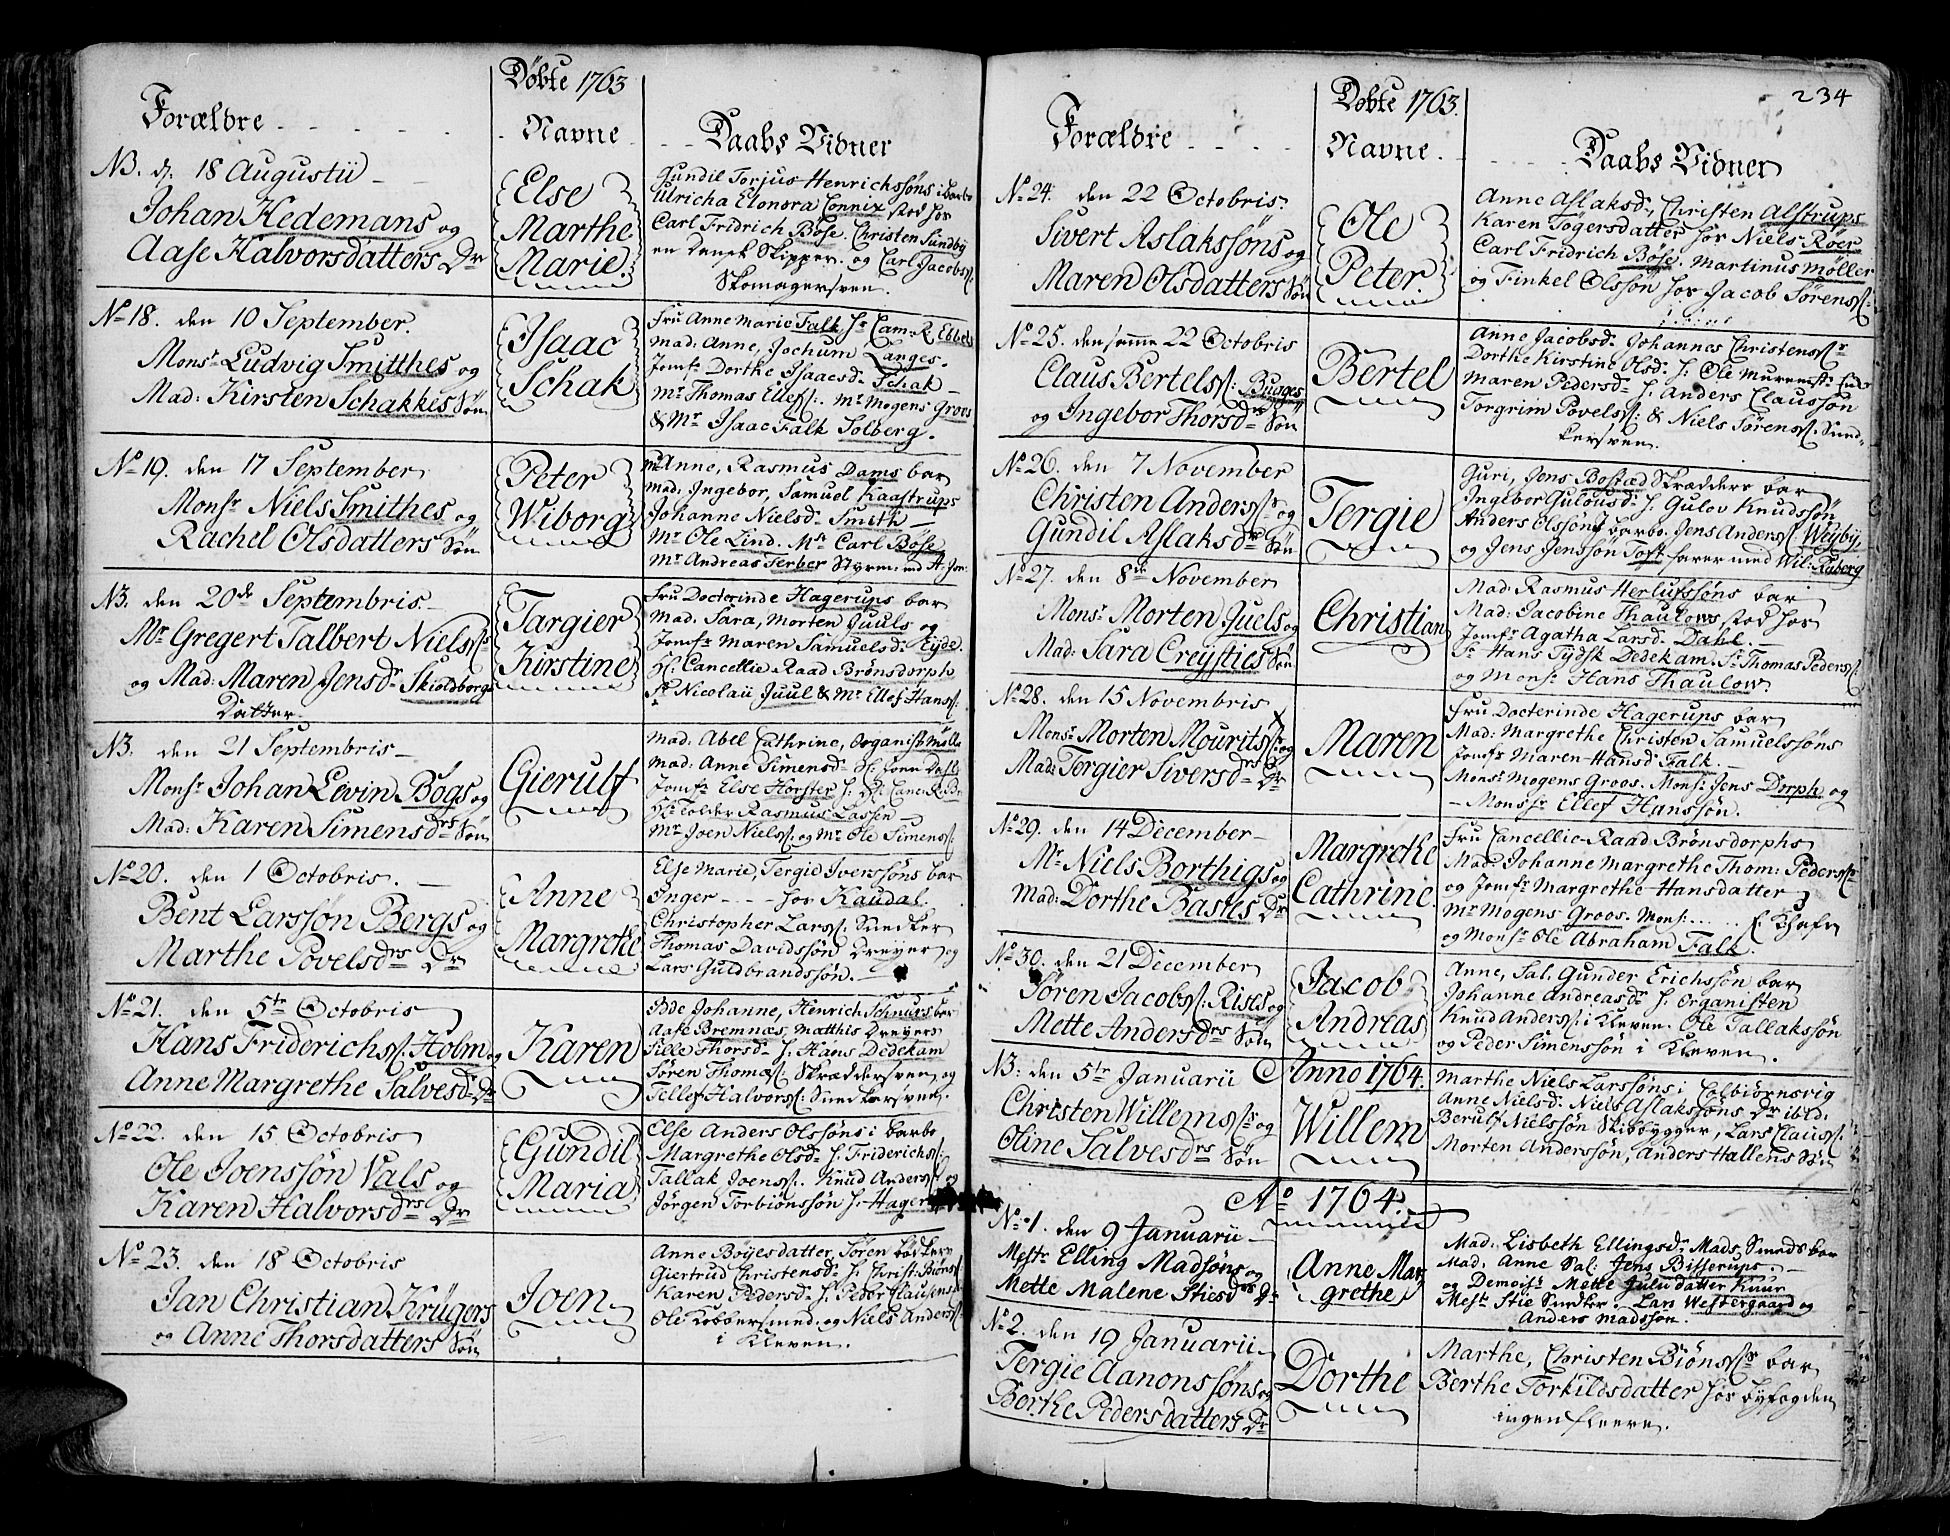 Døbte 1763
Forældre
Navne
Daabs Vidner
N3. d. 18 Augustii
Johan Hedemans og
Aase Halvorsdatters Dr
Else
Marthe
Marie.
Gundil Torjus Henrichssøns i Barbo
Ulricha Elonora Connix stod hos
Carl Fridrich Bose. Christen Sundby
en Dansk Skipper. og Carl Jacobs:
Skomagersven.
No 18. den 10 September.
Monsr Ludvig Smitthes og
Mad: Kirsten Schakkes Søn
Isaac
Schak
Fru Anne Marie Falk Hr Cam: R. Ebbels
mad: Anne, Jochum Langes.
Jomfr Dorthe Isaacsd. Schak
Mr Thomas Ellefs:. Mr Mogens Groos
& Mr Isaac Falk Solberg.
No 19. den 17 September
Monsr Niels Smithes og
Rachel Olsdatters Søn
Peter
Wiborg
Anne, Rasmus Dams bar
mad: Ingebor, Samuel Kaastrups
Johanne Nielsd. Smith
Mr Ole Lind. Mr Carl Bose
Mr Andreas Ferber Styrm: md H. Jon:
N3. den 20de Septembris
Mr Gregert Talbert Nielss
og Mad: Maren Jensdr Skioldborgs
Datter.
Targier
Kirstine
Fru Docterinde Hagerups bar
mad. Sara, Morten Juuls og
Jomfr Maren Samuelsd. Eyde
Hr Cancellie Raad Brønsdorph
Sr Nicolaii Juul & Mr Ellef Hanss:
N3. den 21 Septembris
Monsr Johan Levin Bøgs og
Mad: Karen Simensdrs Søn
Gierulf
Mad: Abel Cathrine, Organist Møllr
mad: Anne Simensd.
Jomfr Else Horster
Hr Tolder Rasmus Lassen
Mr Joen Niels: og Mr Ole Simens:
No 20. den 1 Octobris.
Bent Larssøn Bergs og
Marthe Povelsdrs Dr
Anne
Margrethe
Else Marie, Tergid Iverssøns bar
Inger - - - hos Kaudal.
Christopher Larss. Snedker
Thomas Davidssøn Dreyer og
Lars Guldbrandssøn.
No 21. den 5te Octobris
Hans Friderichs: Holm og
Anne Margrethe Salvesd. Dr
Karen
Bde Johanne, Henrich Schnurs bar
Aase Bremnæs, Matthis Dreyers
Sille Thorsd. H. Hans Dedekam
Søren Thomæs: Skræddersven, og
Tellef Halvors: Snedkersven.
No 22. den 15 Octobris
Ole Joenssøn Vals og
Karen Halvorsdrs Dr
Gundil
Maria
Else Anders Olssøns i barbo
Margrethe Olsd. H. Friderichs:
Tallak Joens:. Knud Anders: og
Jørgen Torbiønssøn H. Hager
No 23. den 18 Octobris
Jan Christian Krügers
og Anne Thorsdatters Søn
Joen
Anne Bøyesdatter, Søren Bødkers
Giertrud Christensd. H. Christ: Biøns:
Karen Pedersd. H. Peder Clausens
Ole Kobbersmed. og Niels Anders:
i Kleven.
234
Døbte 1763.
Forældre
Navne.
Daabs Vidner
No 24. den 22 Octobris.
Sivert Aslakssøns og
Maren Olsdatters Søn
Ole
Peter.
Anne Aslaksd., Christen Alstrups
Karen Tøgersdatter hos Niels Røer
Carl Fridrich Bose. Martinus Møller
og Finkel Olssøn hos Jacob Sørens:
No 25. den samme 22 Octobris
Claus Bertels: Buuges
og Ingebor Thorsdrs Søn
Bertel
Anne Jacobsd. Johannes Christens:
Dorthe Kirstine Olsd: H. Ole Murmstr
Maren Pedersd. H. Anders Claussøn
Torgrim Povels: & Niels Sørens: Sned-
kersven.
No 26. den 7 November
Christen Anders: og
Gundil Aslaksdrs Søn
Tergie
Guri, Jens Bostæd Skrædders bar
Ingebor Gulousd. H. Gulov Knudssøn
Anders Olssøns i barbo. Jens Anders: Weyby,
og Jens Jenssøn Toft farer med Wil: Ruberg
No 27. den 8de November
Monsr Morten Juels og
Mad: Sara Creysties Søn
Christian
Mad: Rasmus Herlufssøns bar
Mad: Jacobine Thaulows, stod hos
Jomfr Agatha Larsd. Dahl.
Sr Hans Tydsk Dedekam. Sr Thomas Peders:
og Monsr Hans Thaulow.
No 28. den 15 Novembris
Monsr Morten Mourits: og
Mad: Tergier Siversdrs Dr
Maren
Fru Docterinde Hagerups bar
Mad: Margrethe Christen Samuelssøns
Jomfr Maren Hansd Falk.
Monsr Mogens Groos. Monsr Jens Dorph og
Monssr Ellef Hanssøn.
No 29. den 14 December
Mr Niels Borthigs og
Mad: Dorthe Bastes Dr
Margrethe
Cathrine
Fru Cancellie-Raad Brønsdorphs
Mad: Johanne Margrethe Thom: Peders:
og Jomfr Margrethe Hansdatter
Mr Mogens Groos. Monsr: . . . . .
og Monsr Ole Abraham Falk.
No 30. den 21 December
Søren Jacobs: Rises og
Mette Andersdrs Søn
Jacob
Andreas
Anne, Sal. Gunder Erichssøn bar
Johanne Andreasdr H. Organisten
Knud Anders: i Kleven. Ole Tallakssøn
og Peder Simenssøn i Kleven.
N3: den 5te Januarii Anno 1764.
Christen Willemss og
Oline Salvesdrs Søn
Willem
Marthe Niels Larssøns i Colbiørnsvig
Anne Nielsd. Niels Aslakssøns Dr ibid.
Berulf Nielssøn Skibbygger, Lars Claus:
Morten Anderssøn, Anders Hallens Søn
Ao 1764.
No 1. den 9 Januarii
Mestr Elling Madsøns og
Mette Malene Stiesdrs Dr
Anne Mar
grethe
Mad: Lisbeth Ellingsd. Mads Smeds bar
Mad: Anne Sal: Jens Bisserups.
og Demoisr Mette Juludatter Knur
Mestr Stie Snedker. Lars Westergaard og
Anders Madssøn.
No 2. den 19 Januarii
Tergie Aanonssøns og
Berthe Pedersdatters Dr
Dorthe
Marthe, Christen Biøns: bar
Berthe Torkildsdatter hos byfogden
ingen fleere.